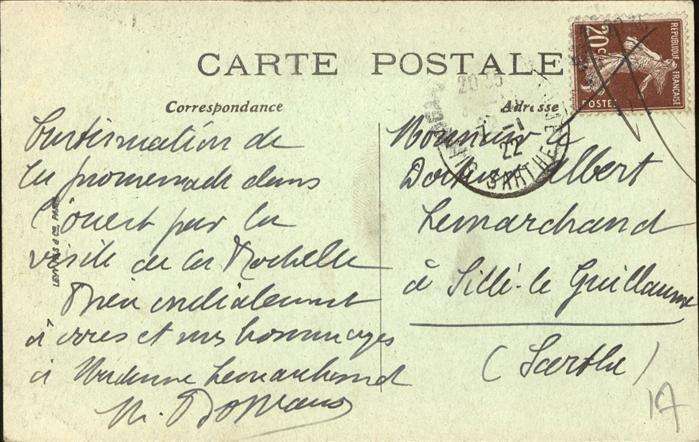 CARTE POSTALE
Correspondance
Adresse
RÉPUBLIQUE FRANÇAISE
20c
POSTES
SARTHE
22
Continuation de
la promenade dans
l'ouest par la
visite de la Rochelle
Bien cordialement
à vous et mes hommages
à Madame Lemarchand
Monsieur le
Docteur Albert
Lemarchand
à Sillé-le Guillaume
(Sarthe)
17